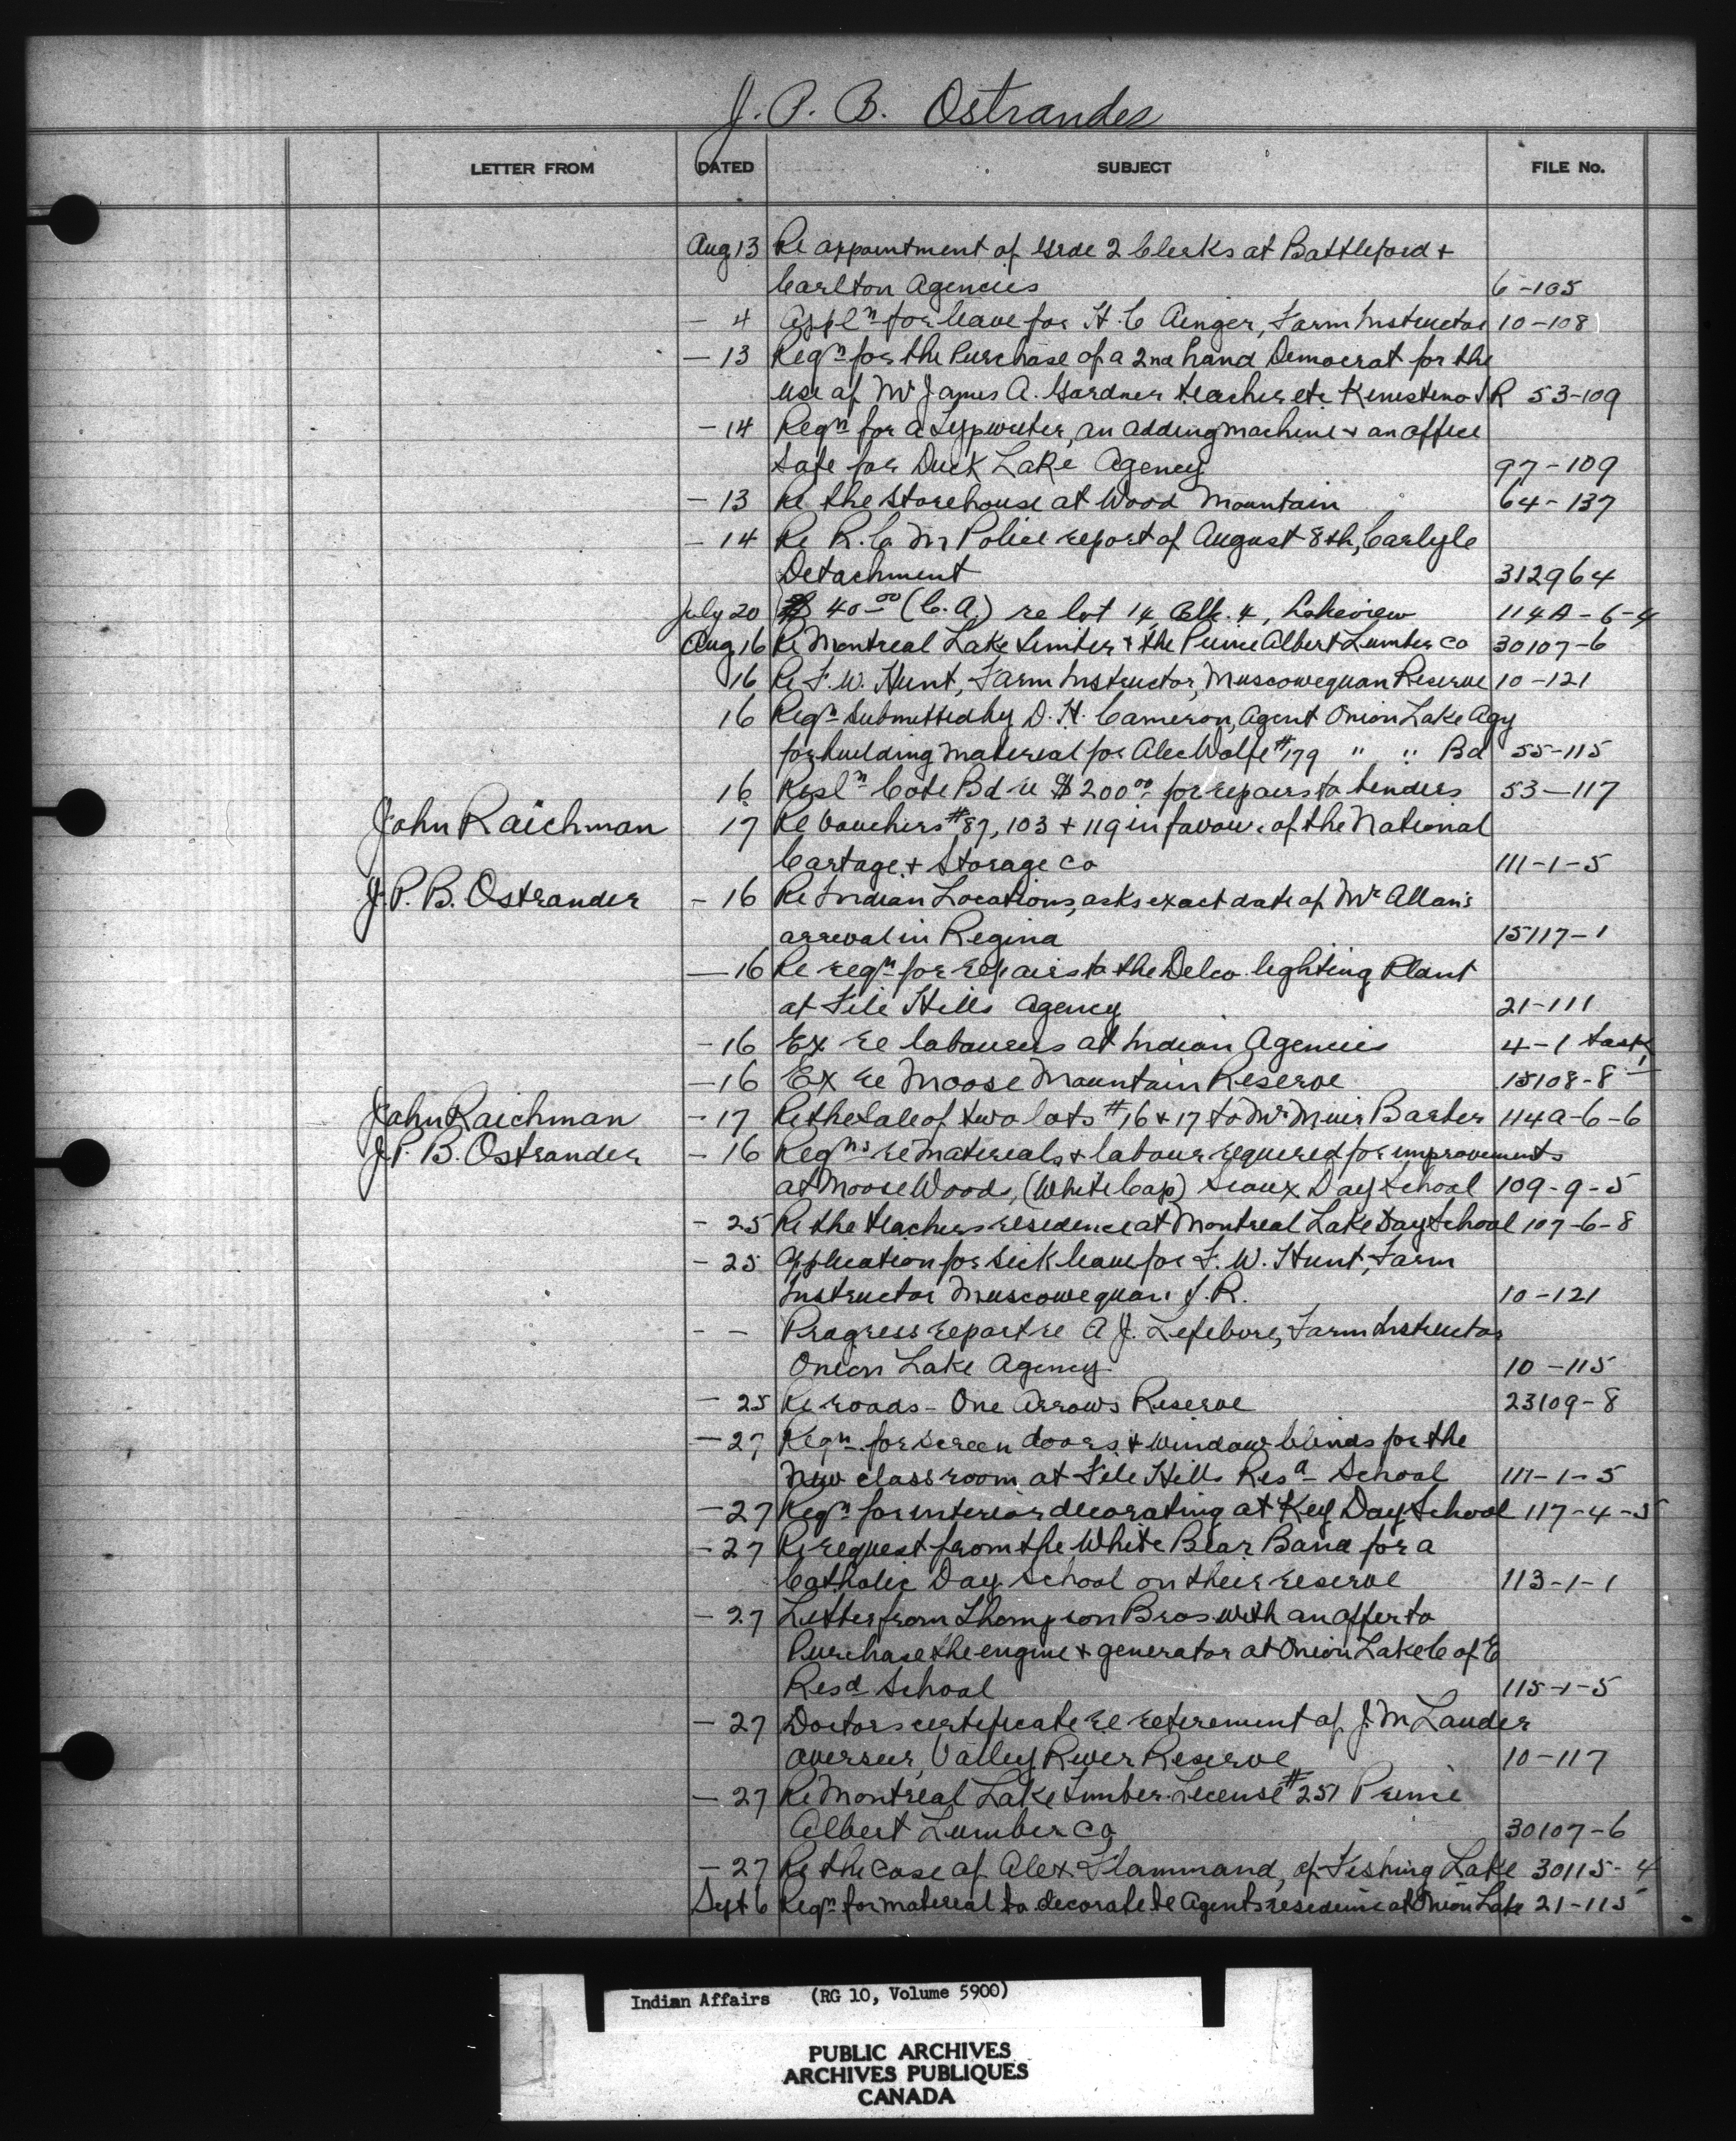 J. P. B. Ostrander
LETTER FROM DATED SUBJECT FILE No.
Aug 13 Re appointment of Grde 2 Clerks at Battleford +
Carlton Agencies 6-105
- 4 Appln for leave for H. C Ainger, Farm Instructor 10-108
- 13 Reqn for the Purchase of a 2nd hand Democrat for the
use of Mr James A. Gardner teacher etc Kinistino I R 53-109
- 14 Reqn for a Typewriter, an adding machine + an office
Safe for Duck Lake Agency 97-109
- 13 Re the Storehouse at Wood Mountain 64-137
- 14 Re R. C M Police report of August 8th, Carlyle
Detachment 312964
July 20 $ 40.00 (C. A) re lot 14, Blk. 4, Lakeview 114A-6-4
Aug 16 Re Montreal Lake Timber + the Prince Albert Lumber Co 30107-6
16 Re F. W. Hunt, Farm Instructor, Muscowequan Reserve 10-121
16 Reqn Submitted by D. H. Cameron, Agent Onion Lake Agy
for building material for Alec Wolfe #179 " " Bd 55-115
16 Resln Cote Bd re $200.00 for repairs to binders 53-117
John Raichman 17 Re Vouchers #87, 103 + 119 in favour of the National
Cartage + Storage Co 111-1-5
J. P. B. Ostrander - 16 Re Indian Locations, asks exact date of Mr Allan's
arrival in Regina 15117-1
- 16 Re reqn for repairs to the Delco lighting Plant
at File Hills Agency 21-111
- 16 Ex re labourers at Indian Agencies 4-1
- 16 Ex re Moose Mountain Reserve 15108-8
John Raichman - 17 Re the Sale of two lots #16 + 17 to Mr Muir Barber 114A-6-6
J. P. B. Ostrander - 16 Reqns re materials + labour required for improvements
at Moose Woods, (White Cap) Sioux Day School 109-9-5
- 25 Re the teachers residence at Montreal Lake Day School 107-6-8
- 25 Application for Sick leave for F. W. Hunt, Farm
Instructor Muscowequan I. R. 10-121
- - Progress report re A J. Lefebvre, Farm Instructor
Onion Lake Agency 10-115
- 25 Re roads - One Arrows Reserve 23109-8
- 27 Reqn for Screen doors + window blinds for the
New class room at File Hills Resd School 111-1-5
- 27 Reqn for interior decorating at Key Day School 117-4-5
- 27 Re request from the White Bear Band for a
Catholic Day School on their reserve 113-1-1
- 27 Letter from Thompson Bros with an offer to
Purchase the engine + generator at Onion Lake C of E
Resd School 115-1-5
- 27 Doctors certificate re retirement of J. M Lauder
overseer, Valley River Reserve 10-117
- 27 Re Montreal Lake timber license #251 Prince
Albert Lumber Co 30107-6
- 27 Re the Case of Alex Flammand, of Fishing Lake 30115-4
Sept 6 Reqn for material to decorate te Agents residence at Onion Lake 21-115
Indian Affairs (RG 10, Volume 5900)
PUBLIC ARCHIVES
ARCHIVES PUBLIQUES
CANADA